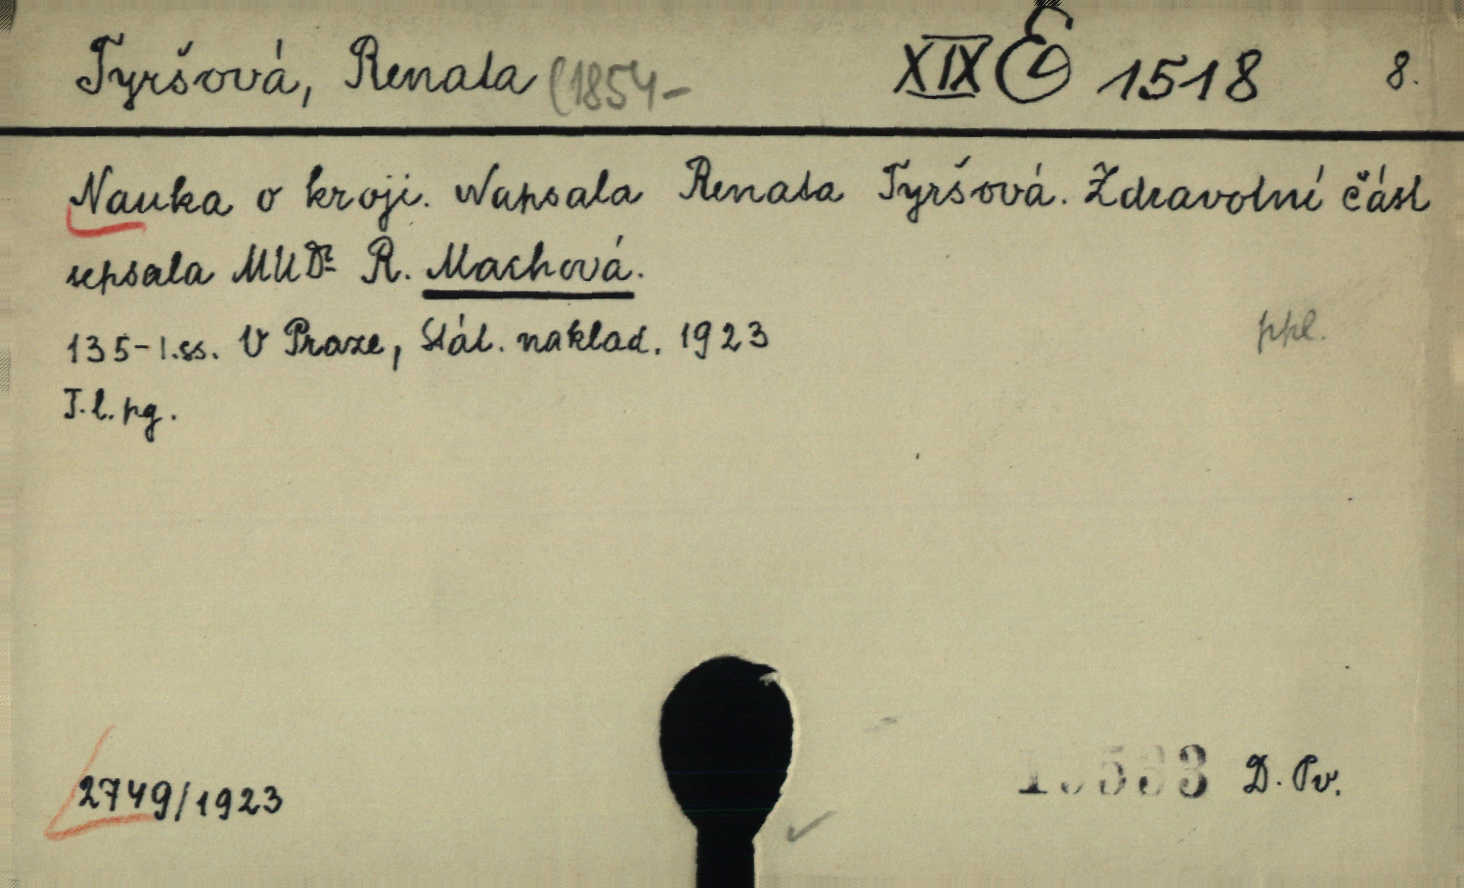 Tyršová, Renata (1854- XIX E 1518 8.
Nauka o kroji. Napsala Renata Tyršová. Zdravotní část
sepsala MUDr R. Machová.
135-I.ss. V Praze, Stát. naklad. 1923
ppl.
T.l.pg.
2749/1923
D. Pv.